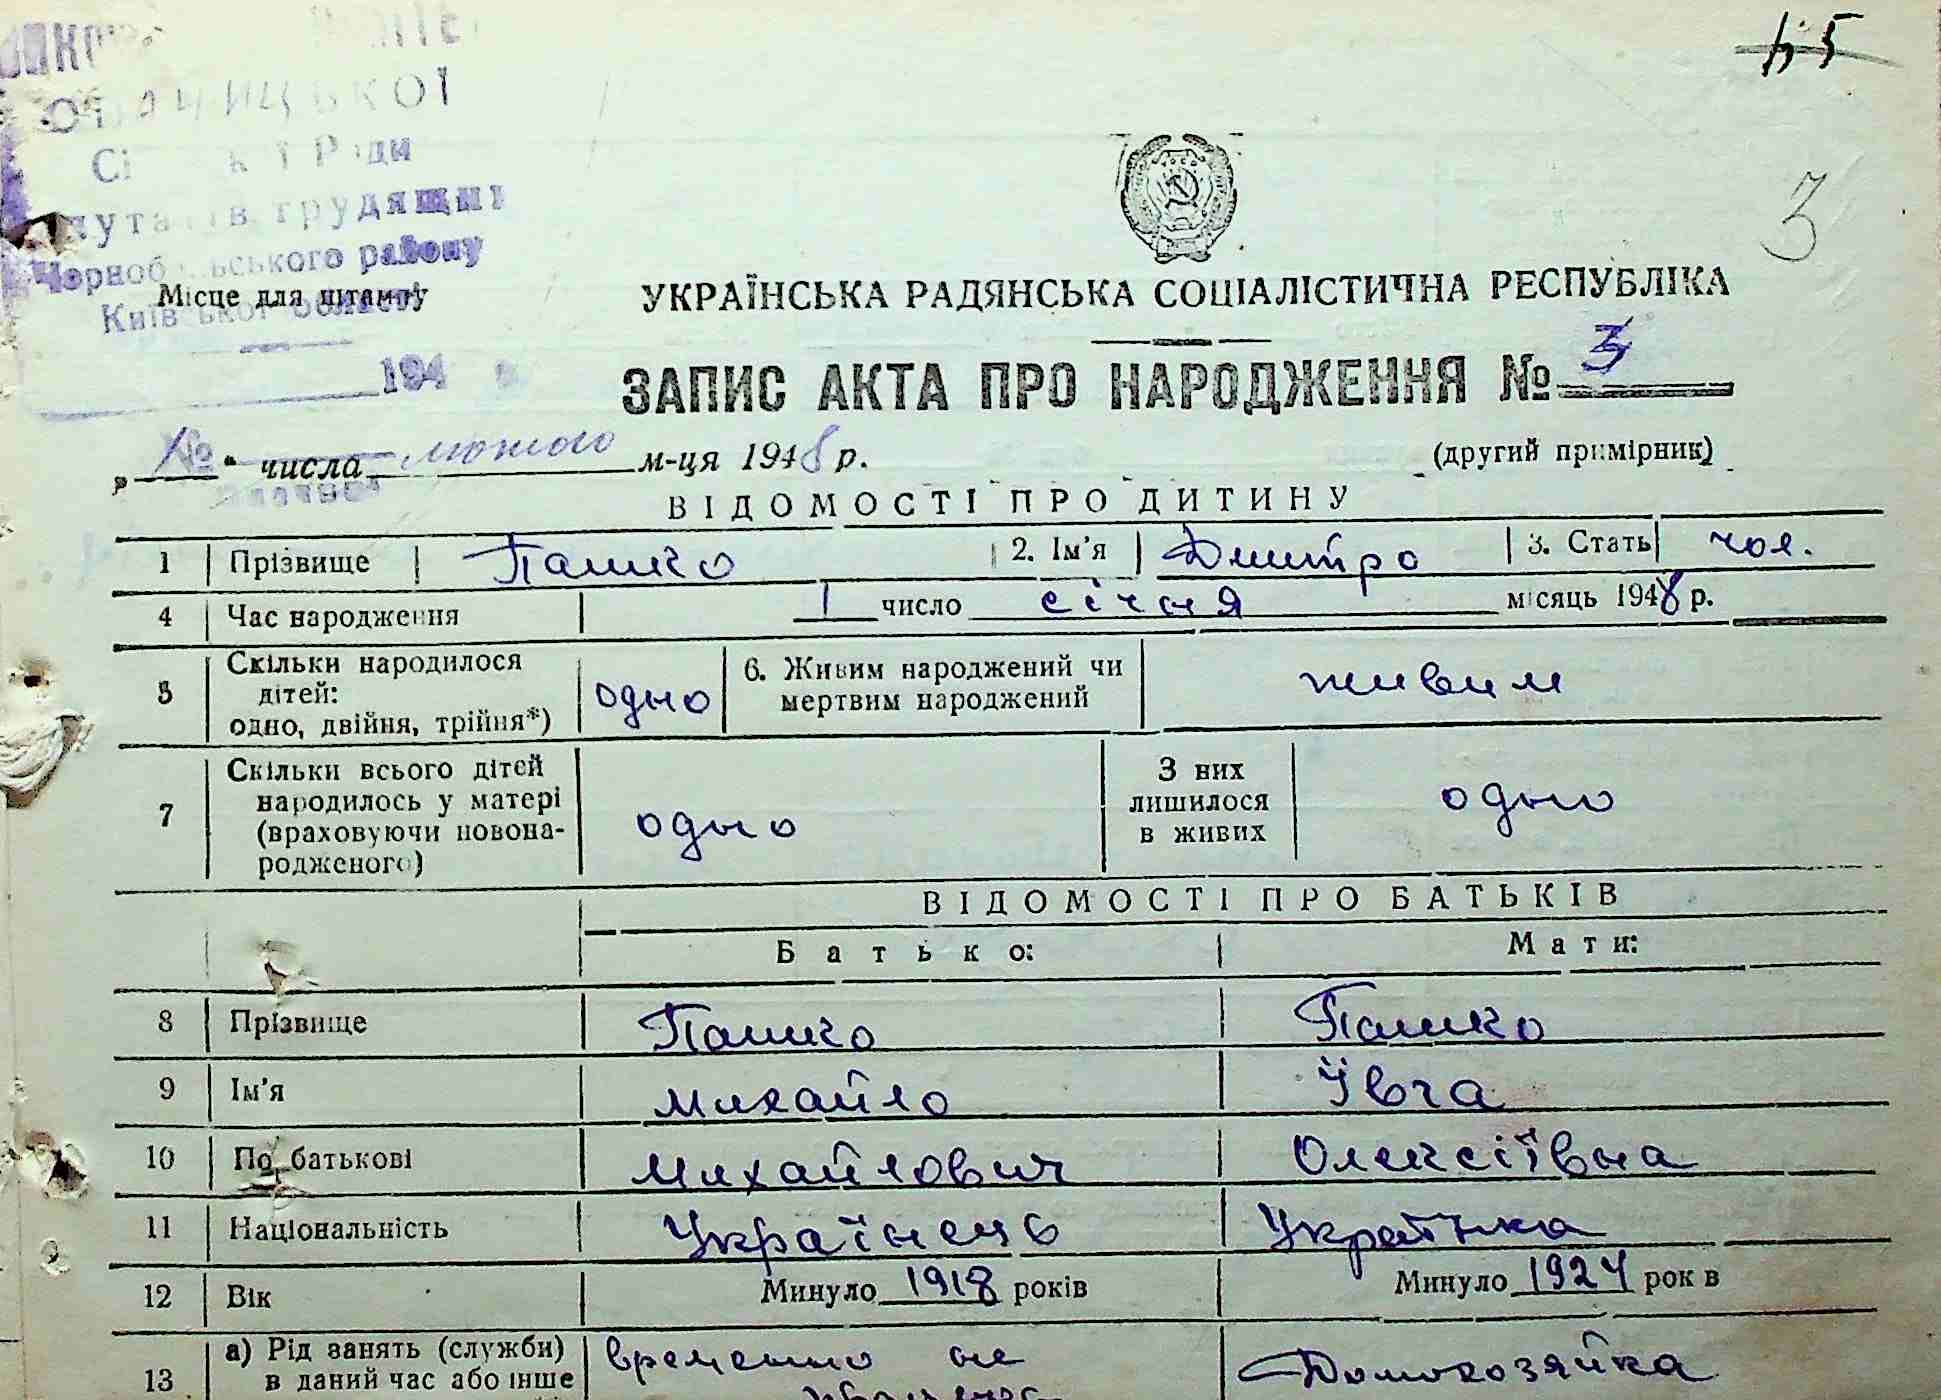 Ради
трудящих
Чорнобильського району
Київської області
Місце для штампу
194
45
3
УКРАЇНСЬКА РАДЯНСЬКА СОЦІАЛІСТИЧНА РЕСПУБЛІКА
ЗАПИС АКТА ПРО НАРОДЖЕННЯ № 3
„ № “ числа лютого м-ця 1948 р.
(другий примірник)
ВІДОМОСТІ ПРО ДИТИНУ
1 Прізвище Пашко 2. Ім’я Дмитро 3. Стать чол.
4 Час народження 1 число січня місяць 1948 р.
5 Скільки народилося дітей: одно, двійня, трійня*) одно 6. Живим народжений чи мертвим народжений живим
7 Скільки всього дітей народилось у матері (враховуючи новонародженого) одно З них лишилося в живих одно
ВІДОМОСТІ ПРО БАТЬКІВ
Батько: Мати:
8 Прізвище Пашко Пашко
9 Ім’я Михайло Ївга
10 По батькові Михайлович Олексіївна
11 Національність Українець Українка
12 Вік Минуло 1918 років Минуло 1924 рок в
13 а) Рід занять (служби) временно не Домохозяйка
в даний час або інше